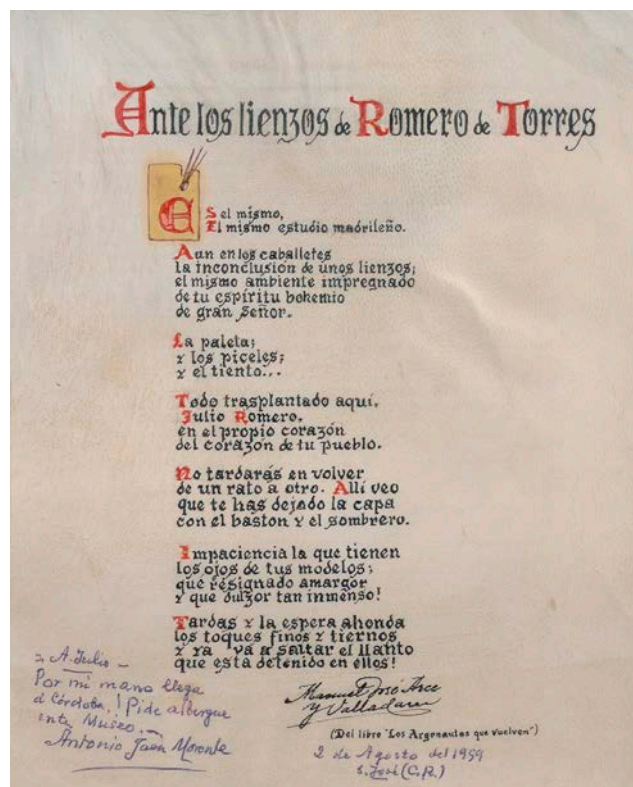 Ante los lienzos de Romero de Torres
Es el mismo,
El mismo estudio madrileño.
Aun en los caballetes
la inconclusión de unos lienzos;
el mismo ambiente impregnado
de tu espíritu bohemio
de gran Señor.
La paleta;
y los piceles;
y el tiento...
Todo trasplantado aquí.
Julio Romero.
en el propio corazón
del corazón de tu pueblo.
No tardarás en volver
de un rato a otro. Allí veo
que te has dejado la capa
con el baston y el sombrero.
Impaciencia la que tienen
los ojos de tus modelos;
que resignado amargor
y que dulzor tan inmenso!
Tardas y la espera ahonda
los toques finos y tiernos
y ya va a saltar el llanto
que está detenido en ellos!
A. Julio -
Por mi mano llega
a Córdoba. ! Pide albergue
en tu Museo. -
Antonio Jaén Morente
Manuel José Arce
y Valladares
(Del libro "Los Argonautas que vuelven")
2 de Agosto del 1959
S. José (C.R.)